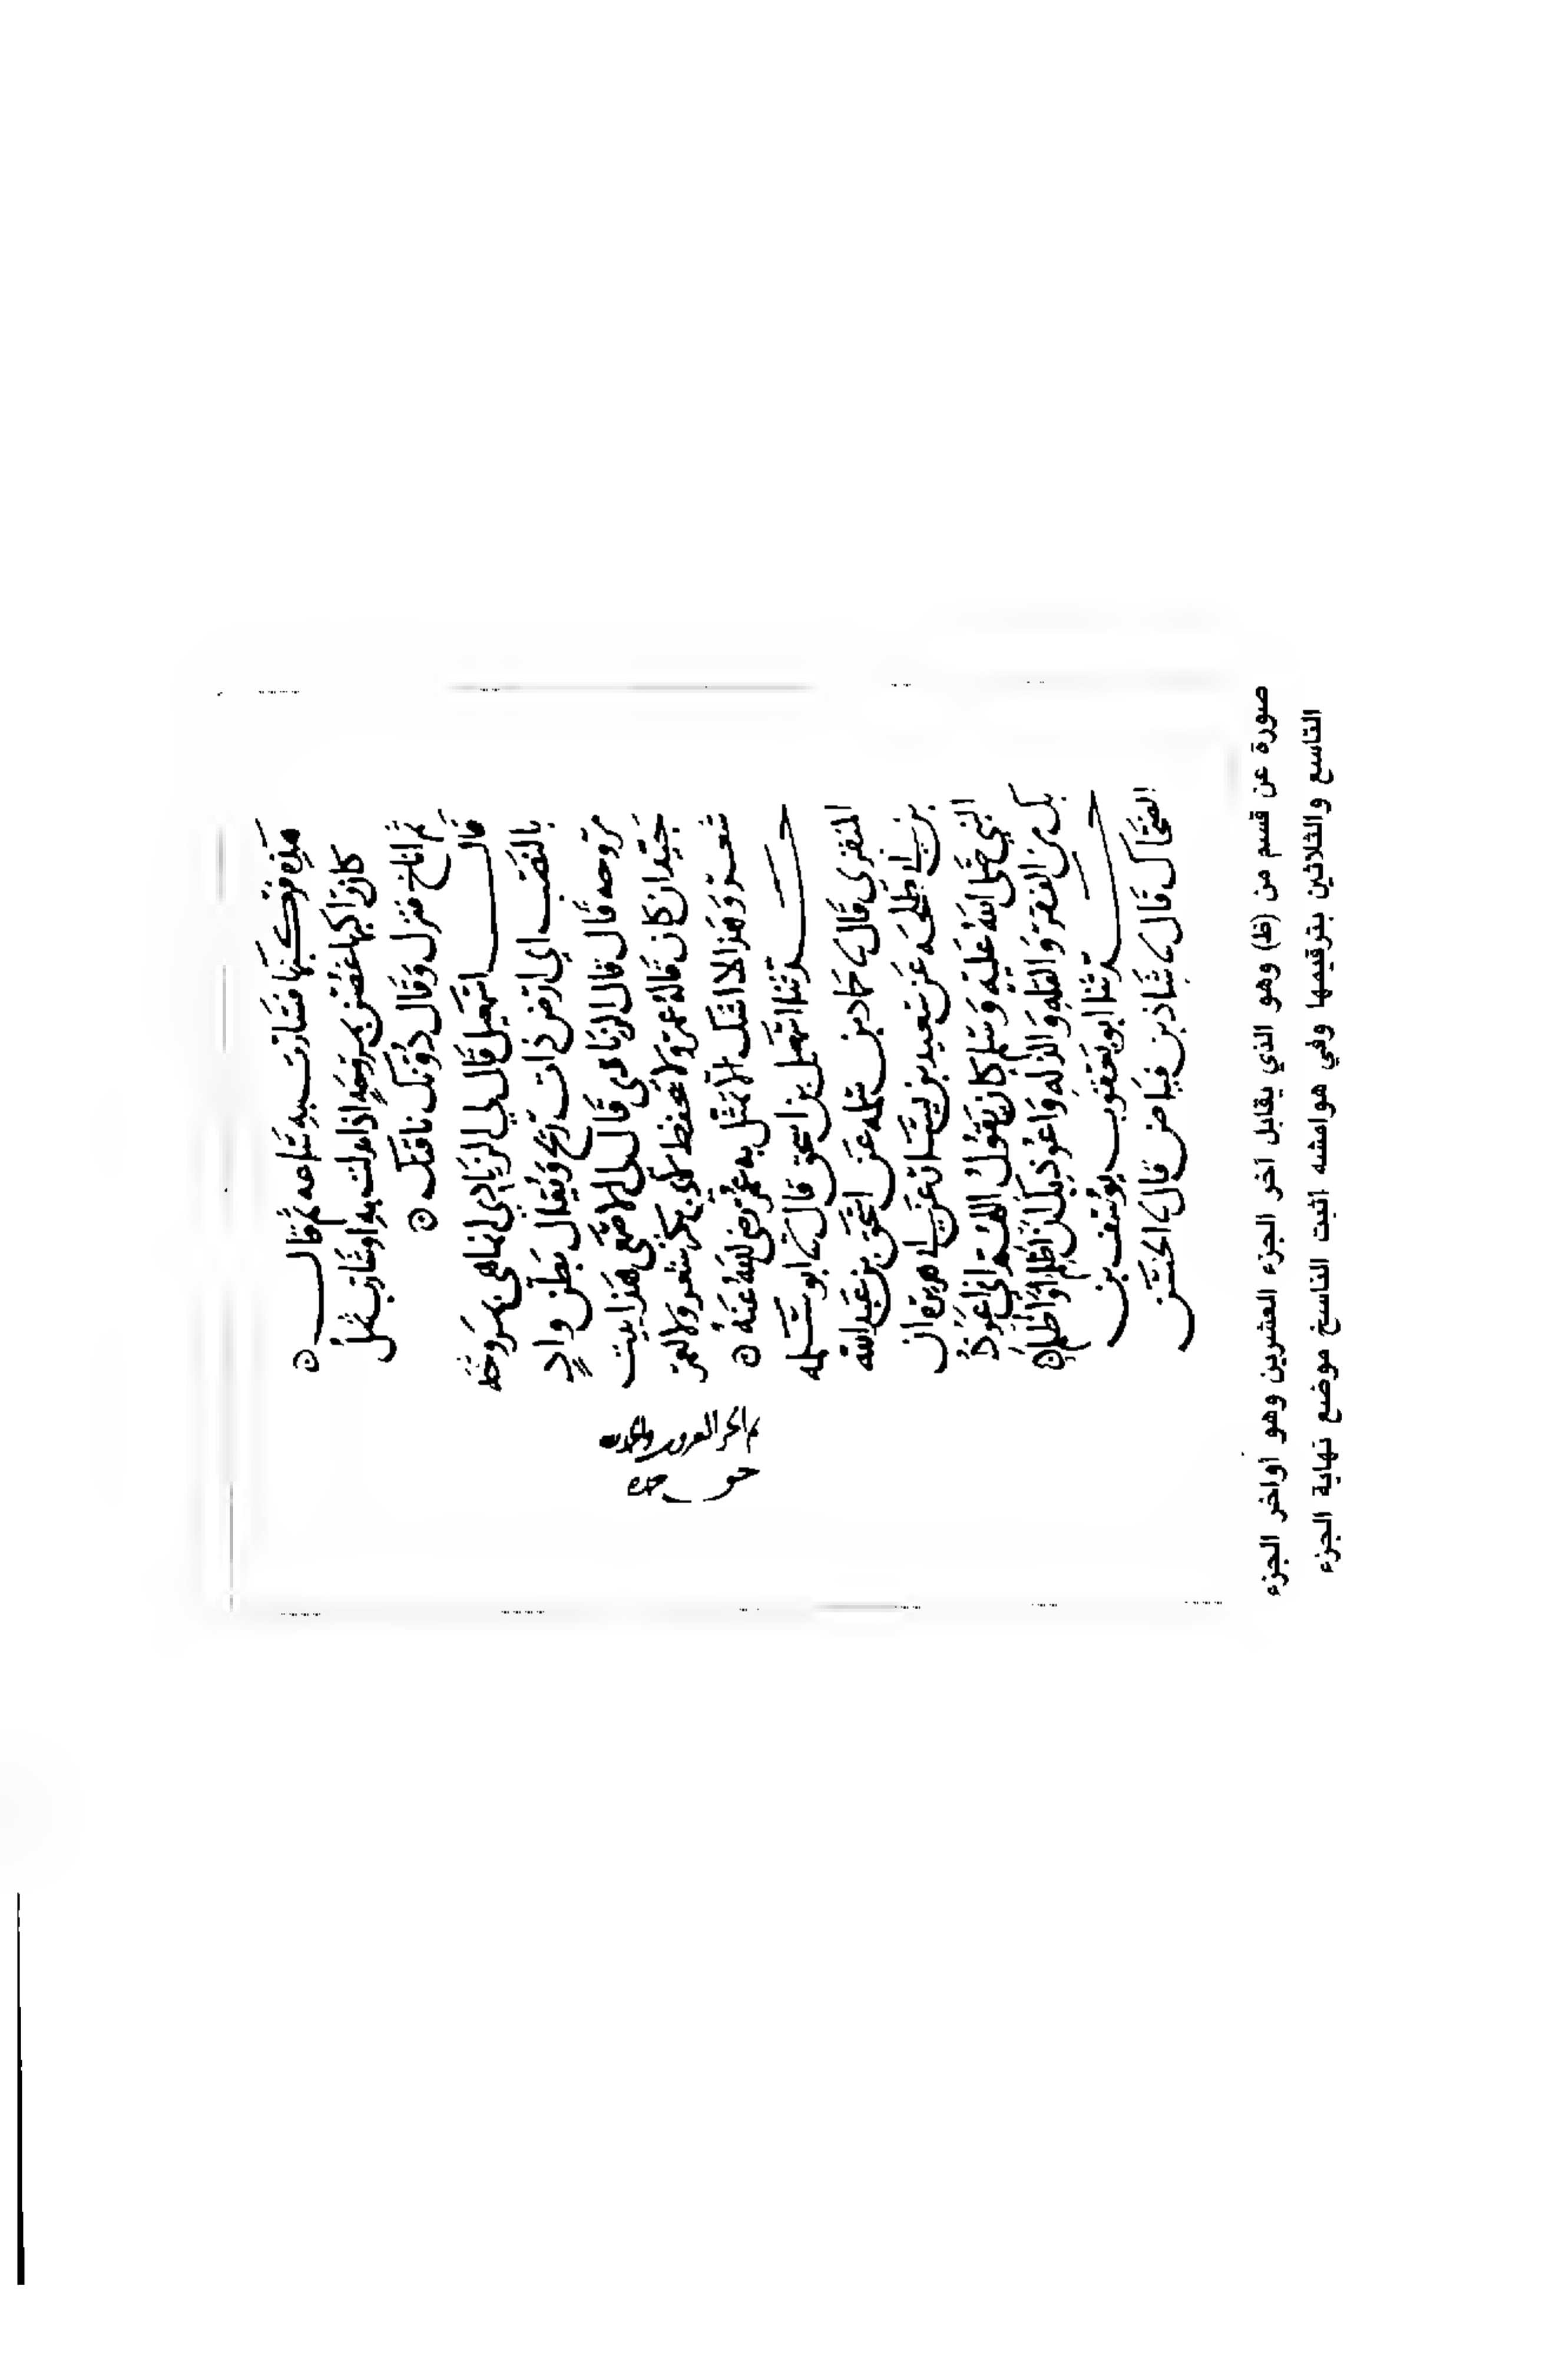 هذه فركبها فسارت به ساعه ثم قال
كان راكبها غصن بمروحة اذا تدلت به او شارب ثمل
ثم اناخ فنزل وقال دونك ناقتك
قال اسمعيل قال لي الزيادي انما هي بمروحه
بالنصب اي ارض ذات ريح ويقال بطن واد
مروحه قال قال الرياشي قال لي الاصمعي هذا بيت
جيد ان كان قاله عمر ولا نحفظ لابي بكر شعر ولا لعمر
شعر وهذا لا اشك الا تمثل به عمر رضي الله عنه
حدثنا اسمعيل بن اسحق قال نا ابو سلمه
المنقري قال نا حماد بن سلمه عن اسحق بن عبد الله
بن ابي طلحه عن سعيد بن يسار عن ابي هريرة ان
النبي صلى الله عليه وسلم كان يقول اللهم اني اعوذ
بك من الفقر والقله والذله واعوذ بك ان اظلم او اظلم
حدثنا ابو يعقوب يوسف بن
الضحاك قال نا شاذ بن فياض قال نا الحسن
صورة عن قسم من (ظ) وهو الذي يقابل آخر الجزء العشرين وهو أواخر الجزء
التاسع والثلاثين بترقيمها وفي هوامشه اثبت الناسخ موضع نهاية الجزء